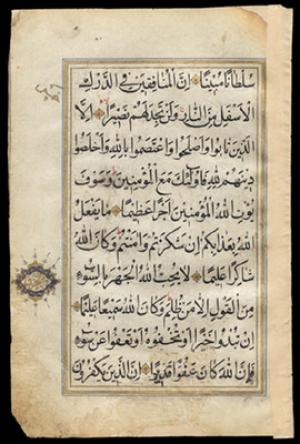 سلطانا مبينا ان المنافقين في الدرك
الاسفل من النار ولن تجد لهم نصيرا الا
الذين تابوا واصلحوا واعتصموا بالله واخلصوا
دينهم لله فاولئك مع المؤمنين وسوف
يؤت الله المؤمنين اجرا عظيما ما يفعل
الله بعذابكم ان شكرتم وامنتم وكان الله
شاكرا عليما لا يحب الله الجهر بالسوء
من القول الا من ظلم وكان الله سميعا عليما
ان تبدوا خيرا او تخفوه او تعفوا عن سوء
فان الله كان عفوا قديرا ان الذين يكفرون